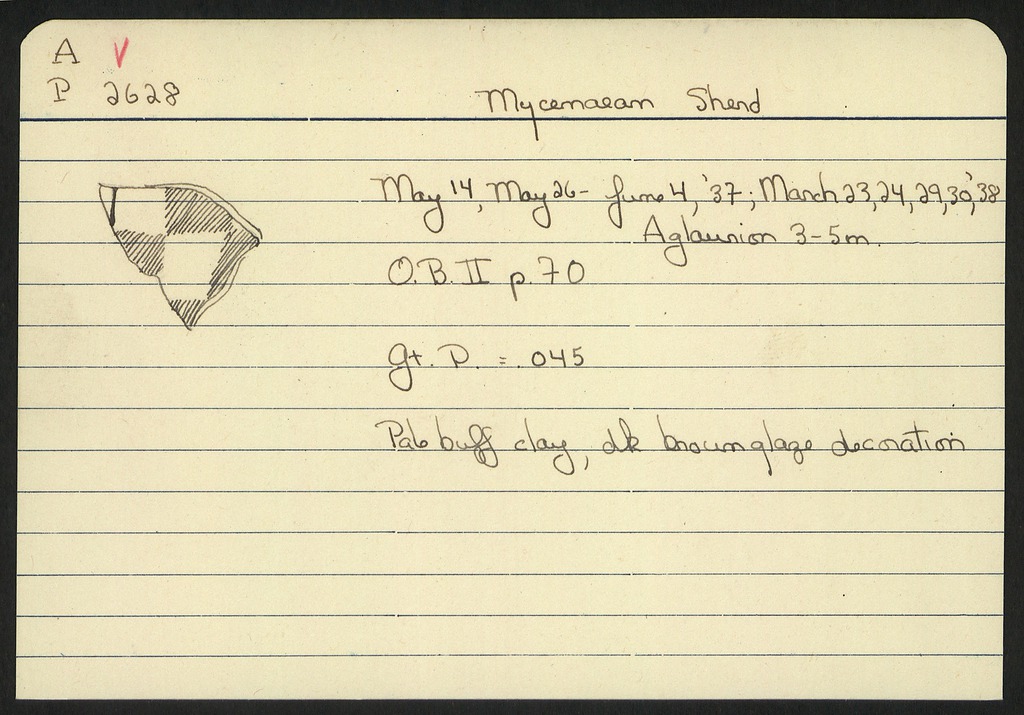 A V
P 2628
Mycenaean Sherd
May 14, May 26 - June 4, '37; March 23, 24, 29, 30, '38
Aglaurion 3-5m.
O.B. II p. 70
Gt. D. = .045
Pale buff clay, dk brown glaze decoration